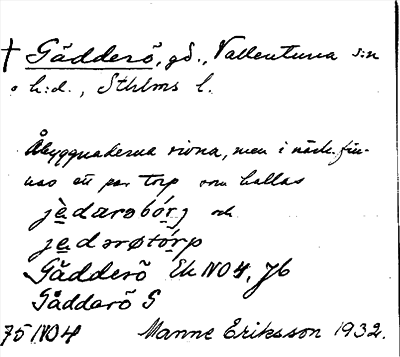 † Gädderö, gd., Vallentuna s:n
o h:d., Sthlms l.
Åbyggnaderna rivna, men i närh. fin-
nas ett par torp som kallas
jèdarøbórj och
jedərøtórp
Gädderö Ek NO4, J6
Gäddarö G
75 NO4 Manne Eriksson 1932.